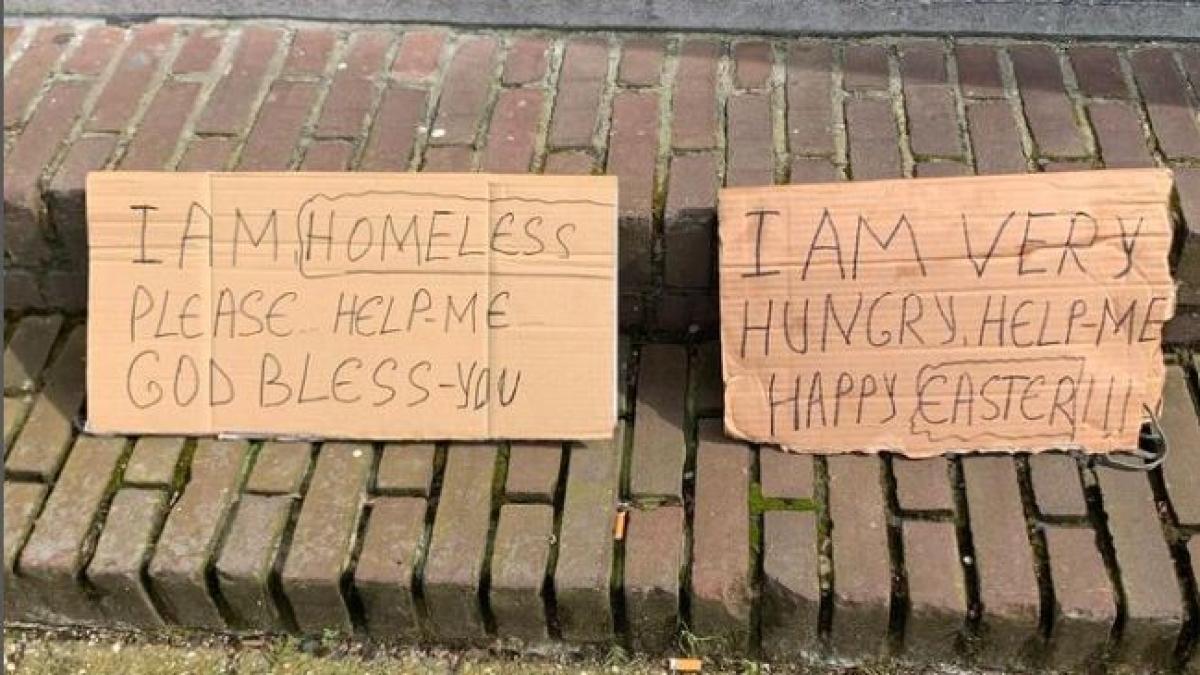 I AM HOMELESS
PLEASE HELP-ME
GOD BLESS-YOU
I AM VERY
HUNGRY. HELP-ME
HAPPY EASTER!!!